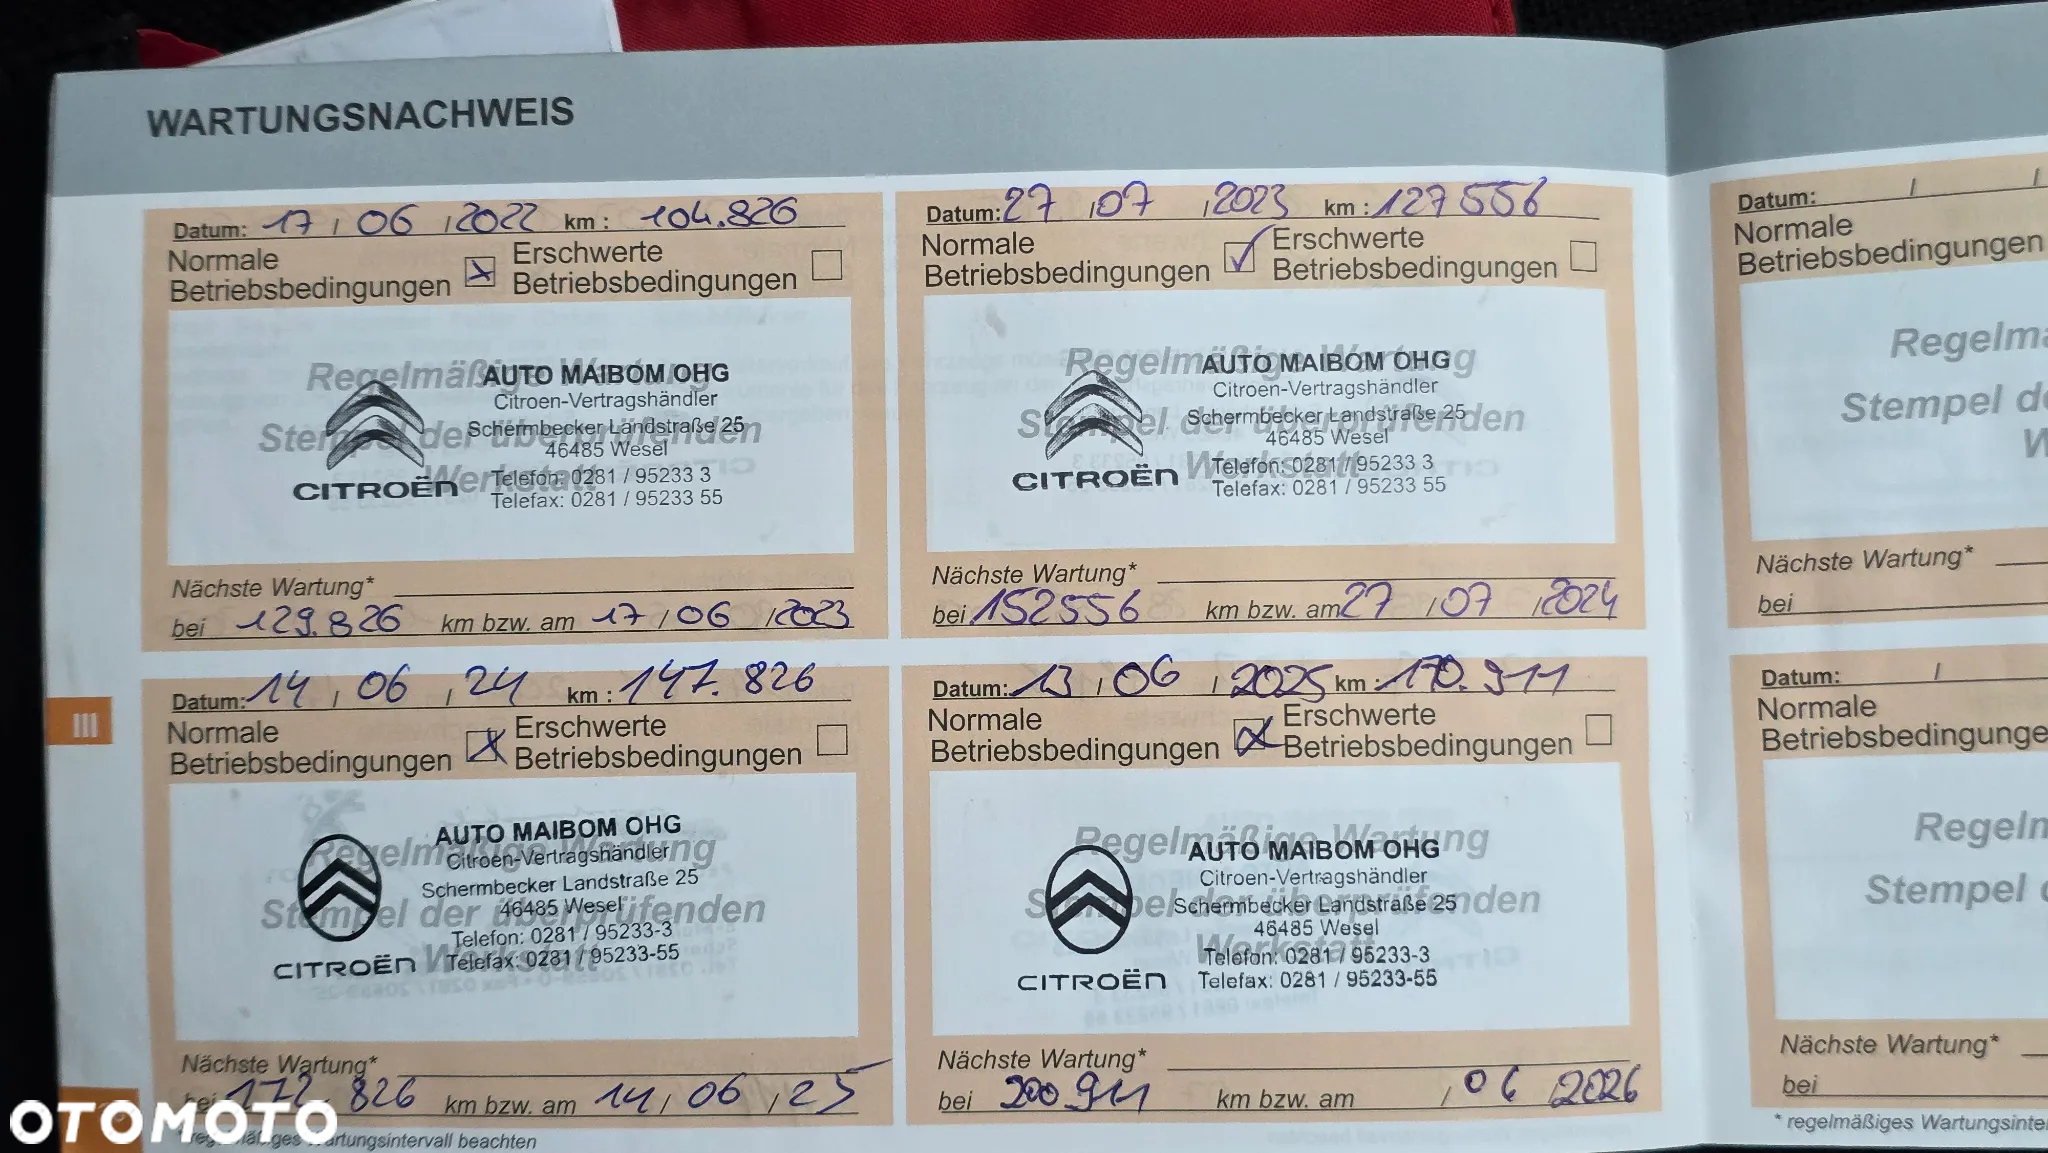 WARTUNGSNACHWEIS
Datum: 17 / 06 / 2022 km : 104.826
Normale
Betriebsbedingungen
Erschwerte
Betriebsbedingungen
Regelmäßige Wartung
Stempel der überprüfenden
Werkstatt
AUTO MAIBOM OHG
Citroen-Vertragshändler
Schermbecker Landstraße 25
46485 Wesel
Telefon: 0281 / 95233 3
Telefax: 0281 / 95233 55
CITROËN
Nächste Wartung*
bei 129.826 km bzw. am 17 / 06 / 2023
Datum: 27 / 07 / 2023 km : 127556
Normale
Betriebsbedingungen
Erschwerte
Betriebsbedingungen
Regelmäßige Wartung
Stempel der überprüfenden
Werkstatt
AUTO MAIBOM OHG
Citroen-Vertragshändler
Schermbecker Landstraße 25
46485 Wesel
Telefon: 0281 / 95233 3
Telefax: 0281 / 95233 55
CITROËN
Nächste Wartung*
bei 152556 km bzw. am 27 / 07 / 2024
III
Datum: 14 / 06 / 24 km : 147.826
Normale
Betriebsbedingungen
Erschwerte
Betriebsbedingungen
Regelmäßige Wartung
Stempel der überprüfenden
Werkstatt
AUTO MAIBOM OHG
Citroen-Vertragshändler
Schermbecker Landstraße 25
46485 Wesel
Telefon: 0281 / 95233-3
Telefax: 0281 / 95233-55
CITROËN
Nächste Wartung*
bei 172.826 km bzw. am 14 / 06 / 25
Datum: 13 / 06 / 2025 km : 170.911
Normale
Betriebsbedingungen
Erschwerte
Betriebsbedingungen
Regelmäßige Wartung
Stempel der überprüfenden
Werkstatt
AUTO MAIBOM OHG
Citroen-Vertragshändler
Schermbecker Landstraße 25
46485 Wesel
Telefon: 0281 / 95233-3
Telefax: 0281 / 95233-55
CITROËN
Nächste Wartung*
bei 200.911 km bzw. am / 06 / 2026
regelmäßiges Wartungsintervall beachten
Datum: / /
Normale
Betriebsbedingungen
Regelmä
Stempel de
W
Nächste Wartung*
bei
Datum: /
Normale
Betriebsbedingunge
Regeln
Stempel
Nächste Wartung*
bei
* regelmäßiges Wartungsinte
OTOMOTO